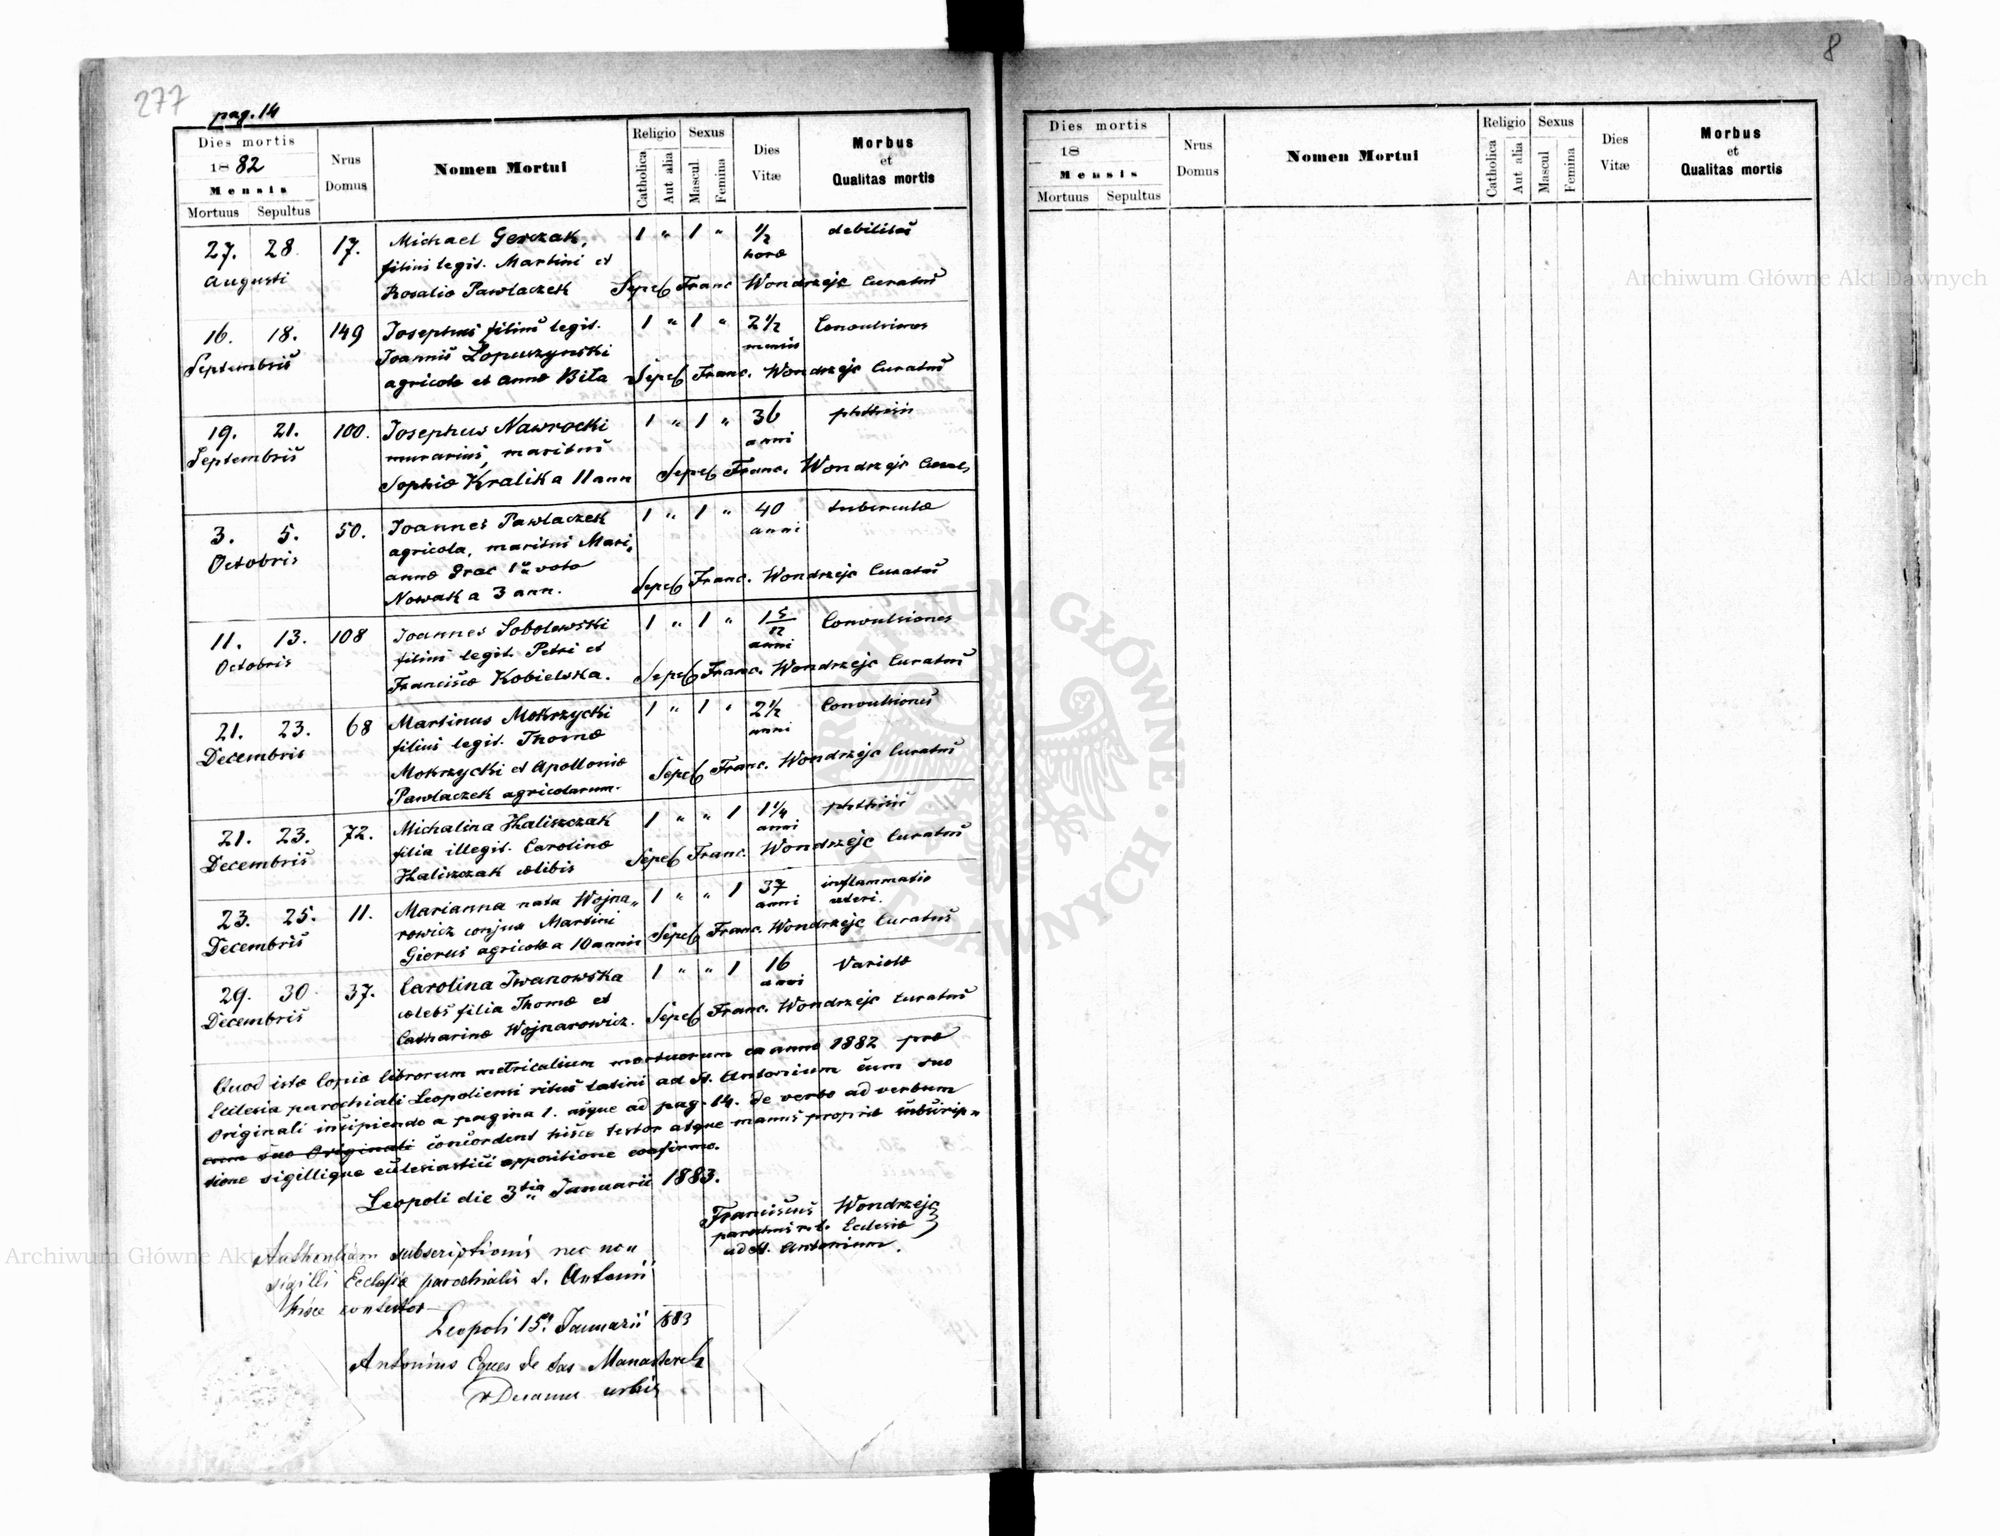 277
pag. 14
8
Dies mortis
1882
Mensis
Mortuus Sepultus
Nrus Domus
Nomen Mortui
Religio
Catholica
Aut alia
Sexus
Mascul
Femina
Dies Vitæ
Morbus
et
Qualitas mortis
27. 28. 17. Michael Gerczak, 1 " 1 " 1/2 debilitas
Augusti filius legit. Martini et horæ
Rosaliæ Pawlaczek Sepel. Franc Wondrzejc Curatus
16. 18. 149 Josephus filius legit. 1 " 1 " 2 1/2 Convulsiones
Septembris Joannis Łopuszynski mensis
agricolæ et Annæ Biła Sepel. Franc. Wondrzejc Curatus
19. 21. 100. Josephus Nawrocki 1 " 1 " 36 phthisis
Septembris murarius, maritus anni
Sophiæ Kralik a 11 ann Sepel. Franc. Wondrzejc Curats
3. 5. 50. Joannes Pawlaczek 1 " 1 " 40 tuberculæ
Octobris agricola, maritus Mari„ anni
annæ Prac 1º voto
Nowak a 3 ann. Sepel. Franc. Wondrzejc Curatus
11. 13. 108 Joannes Sobolewski 1 " 1 " 1 5/12 Convulsiones
Octobris filius legit. Petri et anni
Franciscæ Kobielska. Sepel. Franc. Wondrzejc Curatus
21. 23. 68 Martinus Mokrzycki 1 " 1 " 2 1/2 Convulsiones
Decembris filius legit. Thomæ anni
Mokrzycki et Apolloniæ Sepel. Franc. Wondrzejc Curatus
Pawlaczek agricolarum.
21. 23. 72. Michalina Haliszczak 1 " " 1 1 1/4 phthisis
Decembris filia illegit. Carolinæ anni
Haliszczak cælibis Sepel. Franc. Wondrzejc Curatus
23. 25. 11. Marianna nata Wojna„ 1 " " 1 37 inflammatio
Decembris rowicz conjux Martini anni uteri.
Gierus agricolæ a 10 annis Sepel. Franc. Wondrzejc Curatus
29. 30. 37. Carolina Iwanowska 1 " " 1 16 Variolæ
Decembris cælebs filia Thomæ et anni
Catharinæ Wojnarowicz. Sepel. Franc. Wondrzejc Curatus
Quod istæ Copiæ librorum metricalium mortuorum ex anno 1882 præ
Ecclesia parochiali Leopoliensi ritus latini ad St. Antonium cum suo
Originali incipiendo a pagina 1. usque ad pag. 14. de verbo ad verbum
cum suo Originali concordent hisce testor atque manus propriæ subscrip„
tione sigillique ecclesiastici appositione confirmo.
Leopoli die 3tia Januarii 1883.
Franciscus Wondrzejc
parochus r. l. Ecclesiæ
ad St. Antonium.
Authentiam subscriptionis nec non
sigilli Ecclesiæ parochialis S. Antonii
hisce contestor
Leopoli 15. Januarii 1883
Antonius Eques de Sas Manasterski
Decanus urbis
Dies mortis
18
Mensis
Mortuus Sepultus
Nrus Domus
Nomen Mortui
Religio
Catholica
Aut alia
Sexus
Mascul
Femina
Dies Vitæ
Morbus
et
Qualitas mortis
Archiwum Główne Akt Dawnych
ARCHIWUM GŁÓWNE AKT DAWNYCH
Archiwum Główne Akt Dawnych